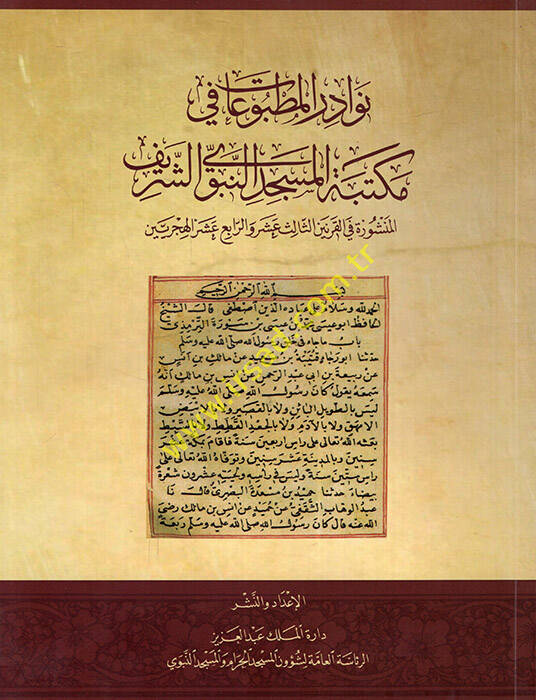 نوادر المطبوعات في
مكتبة المسجد النبوي الشريف
المنشورة في القرنين الثالث عشر والرابع عشر الهجريين
بسم الله الرحمن الرحيم
الحمد لله وسلام على عباده الذين اصطفى قال الشيخ
الحافظ ابو عيسى محمد بن عيسى بن سورة الترمذي
باب ما جاء في خلق رسول الله صلى الله عليه وسلم
حدثنا ابو رجاء قتيبة بن سعيد عن مالك بن انس
عن ربيعة بن ابي عبد الرحمن عن انس بن مالك انه
سمعه يقول كان رسول الله صلى الله عليه وسلم
ليس بالطويل البائن ولا بالقصير ولا بالابيض
الامهق ولا بالآدم ولا بالجعد القطط ولا بالسبط
بعثه الله تعالى على راس اربعين سنة فاقام بمكة عشر
سنين وبالمدينة عشر سنين وتوفاه الله تعالى على
راس ستين سنة وليس في راسه ولحيته عشرون شعرة
بيضاء حدثنا حميد بن مسعدة البصري قال نا
عبد الوهاب الثقفي عن حميد عن انس بن مالك رضي
الله عنه قال كان رسول الله صلى الله عليه وسلم ربعة
www.irsad.com.tr
الإعداد والنشر
دارة الملك عبد العزيز
الرئاسة العامة لشؤون المسجد الحرام والمسجد النبوي